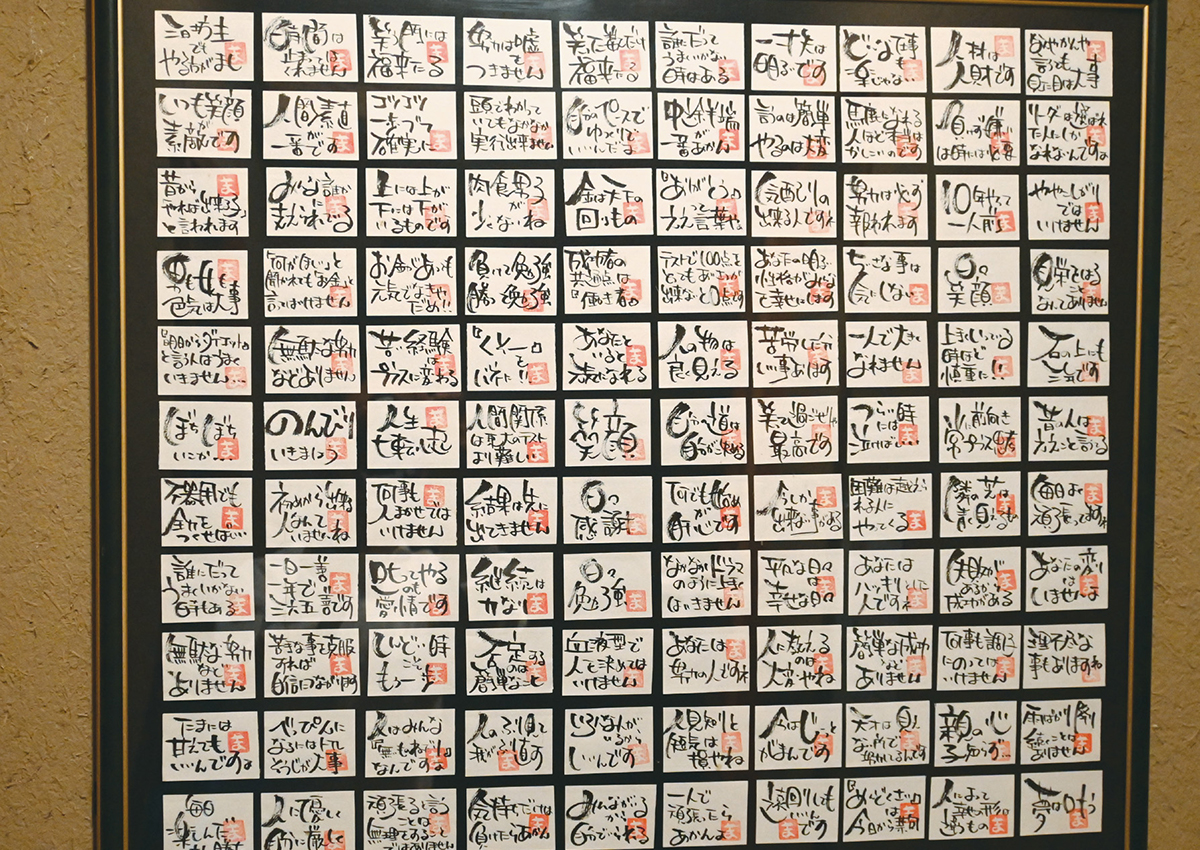 三日坊主
でも
やるほうがまし
時間は
くれません
笑う門には
福来たる
努力は嘘
つきません
笑った数だけ
福来たる
誰だって
うまくいかない
時はある
一寸先は
明るいです
どんな仕事も
楽じゃない
人材は
人財です
なんやかんや
言うても
見た目は大事
いつも笑顔
が
素敵です
人間素直
が
一番です
コツコツ
一歩づつ
確実に
頭でわかって
いてもなかなか
実行出来ません
自分のペースで
ゆっくりで
いいんだよ
中途半端
が
一番あかん
言うのは簡単
やるのは大変
馬鹿になれる
人ほど本当は
かしこいのです
負けず嫌い
は時には必要
リーダーは選ばれ
た人にしか
なれないんですよ
昔から
やれば出来る
と言われます
みんな誰か
に
支えられてる
上には上が
下には下が
いるものです
肉食男子
が
少ないね
金は天下の
回りもの
ありがとう
って
ええ言葉や
気配りの
出来る人ですね
努力は必ず
報われます
10年やって
一人前
男も女も
色気は大事
「何がほしい」と
聞かれても「お金」と
言ってはいけません
お金があっても
元気でなきゃ
だめ!!
負けて勉強
勝って勉強
成功者の
共通点は
「働き者」
テストで100点を
とってもあいさつが
出来ないと0点です
あなたの明るい
性格がみんな
を幸せにします
ちいさな事は
気にしない
日々
笑顔
「明日からダイエット」
と言う人はうまく
いきません…
無駄な努力
などありません
苦い経験
は
プラスに変わる
あなたと
いると
元気になれる
人の物は
良く見える
苦労した分
いい事あります
一人で大きく
なれません
上手くいってる
時ほど
慎重に!!
石の上にも
三年です
ぼちぼち
いこか…
のんびり
いきましょう
人生
七転び八起き
人間関係
は東大のテスト
より難しい
笑顔
自分の道は
自分が決める
笑って過ごせりゃ
最高です
つらい時
には
泣けばいい…
常に前向き
常にプラス思考
昔の人は
ええこと言う
不器用でも
全力を
つくせばいい
初めから出来る
人なんて
いませんね
何事も
人まかせでは
いけません
結果は先に
出てきません
日々
感謝
何でも始め
が
肝心です
今しか
出来ない事がある
困難は越えら
れる人に
やってくる
隣の芝は
青く見えるもの
毎日よく
頑張ってますね
誰にだって
うまくいかない
日もある
一日一善
一年で
三六五善です
叱ってやる
のも
愛情です
継続は
力なり
日々
勉強
なかなかドラマ
のように上手く
はいきません
平凡な日々
は
幸せな日々
あなたは
ハッキリした
人ですね
失敗が
あるから
成功がある
あなたの変わり
は
いませんよ
無駄な努力
など
ありません
苦手な事を克服
すれば
自信につながります
しんどい時
こそ
もう一歩
否定する
のは
簡単なこと
血液型で
人を決めては
いけません
あなたは
努力の人ですね
人に教える
のは
大変やね
簡単な成功
など
ありません
何事も調子
にのっては
いけません
理不尽な
事もありますね
たまには
甘えても
いいんですよ
べっぴんに
なるにはトイレ
そうじが大事
人はみんな
「無いものねだり」
なんですよ
人のふり見て
我がふり直す
いろんな人が
いるから
いいんです
人見知りと
短気は
損やね
今はじっと
がまんです
天才は見え
ない所で
努力してるんです
親の心
子知らず…
雨ばかり降り
続くことは
ありません
毎日
楽しんだ
人に優しく
自分に厳しく
頑張ると言う
ことは
無理をすること
ではありません
気持ちだけは
負けたらあかん
みんながいる
から
自分でいられる
一人で
頑張ったら
あかんよ
遠回りしても
いい
んです
「めんどくさい」
は
今日から禁句
人によって
幸せの形は
違うもの